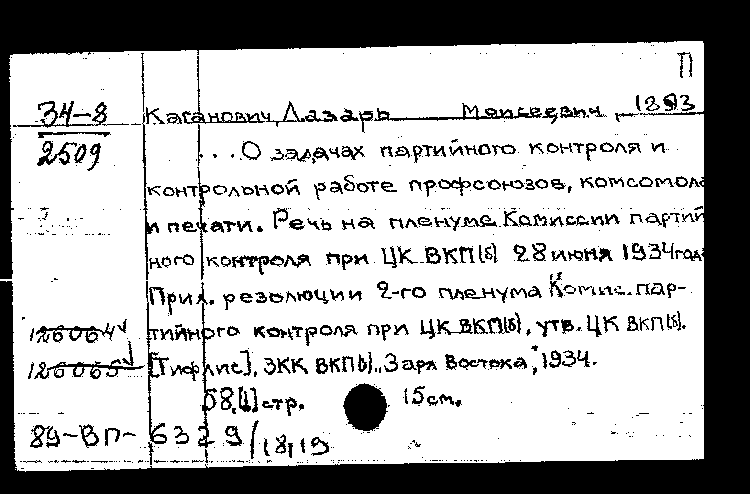 П
34-8 Каганович, Лазарь Моисеевич, 1893
2509 ...О задачах партийного контроля и
контрольной работе профсоюзов, комсомола
и печати. Речь на пленуме Комиссии партий
ного контроля при ЦК ВКП(б) 28 июня 1934 года
Прил. резолюции 2-го пленума Комис. пар-
126064 тийного контроля при ЦК ВКП(б), утв. ЦК ВКП(б).
126065 [Тифлис], ЗКК ВКП(б) "Заря Востока", 1934.
58,[1] стр. 15 см.
89-ВП-6329/18,19